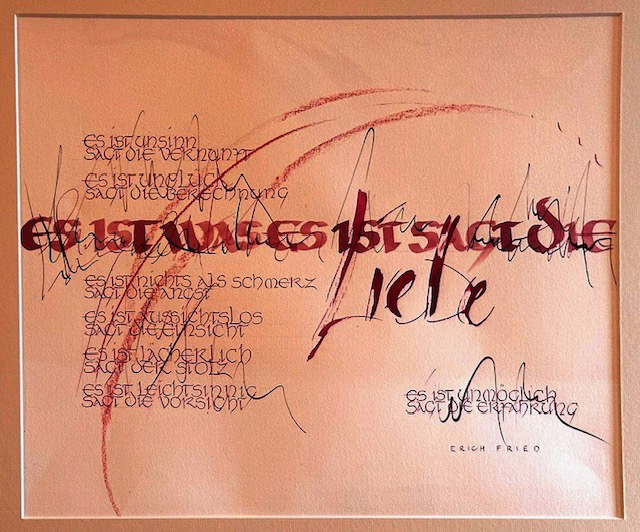 ES IST UNSINN
SAGT DIE VERNUNFT
ES IST UNGLÜCK
SAGT DIE BERECHNUNG
ES IST WAS ES IST SAGT DIE
Liebe
ES IST NICHTS ALS SCHMERZ
SAGT DIE ANGST
ES IST AUSSICHTSLOS
SAGT DIE EINSICHT
ES IST LÄCHERLICH
SAGT DER STOLZ
ES IST LEICHTSINNIG
SAGT DIE VORSICHT
ES IST UNMÖGLICH
SAGT DIE ERFAHRUNG
ERICH FRIED